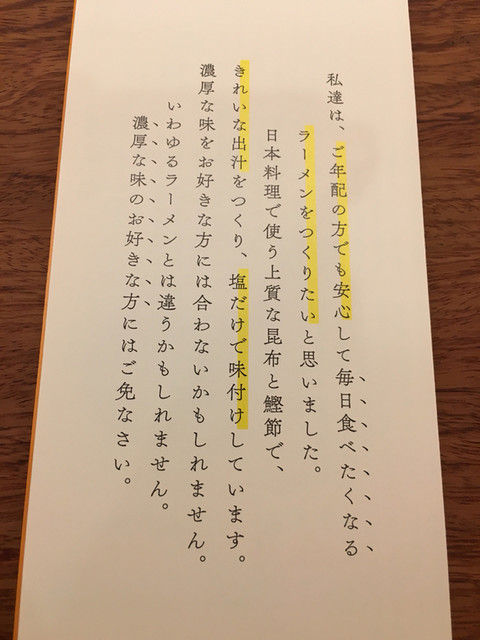 私達は、ご年配の方でも安心して毎日食べたくなる
ラーメンをつくりたいと思いました。
日本料理で使う上質な昆布と鰹節で、
きれいな出汁をつくり、塩だけで味付けしています。
濃厚な味をお好きな方には合わないかもしれません。
いわゆるラーメンとは違うかもしれません。
濃厚な味のお好きな方にはご免なさい。